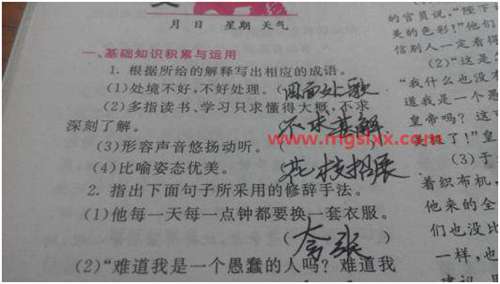 月 日 星期 天气
一、基础知识积累与运用
1. 根据所给的解释写出相应的成语。
(1)处境不好,不好处理。(四面处歌
(2)多指读书、学习只求懂得大概,不求
深刻了解。(不求甚解
(3)形容声音悠扬动听。(
(4)比喻姿态优美。(花枝招展
2. 指出下面句子所采用的修辞手法。
(1)他每一天每一点钟都要换一套衣服。
(夸张
(2)“难道我是一个愚蠢的人吗?难道我
www.mgslxx.com
的官员说,“陛下
美的色彩!”他们
信别人一定看得
(2)“这是
“我什么也没
道我是一个愚
皇帝吗?这
了!”皇
(3)于
着织布机,
他来的全
们也没比
一样,也